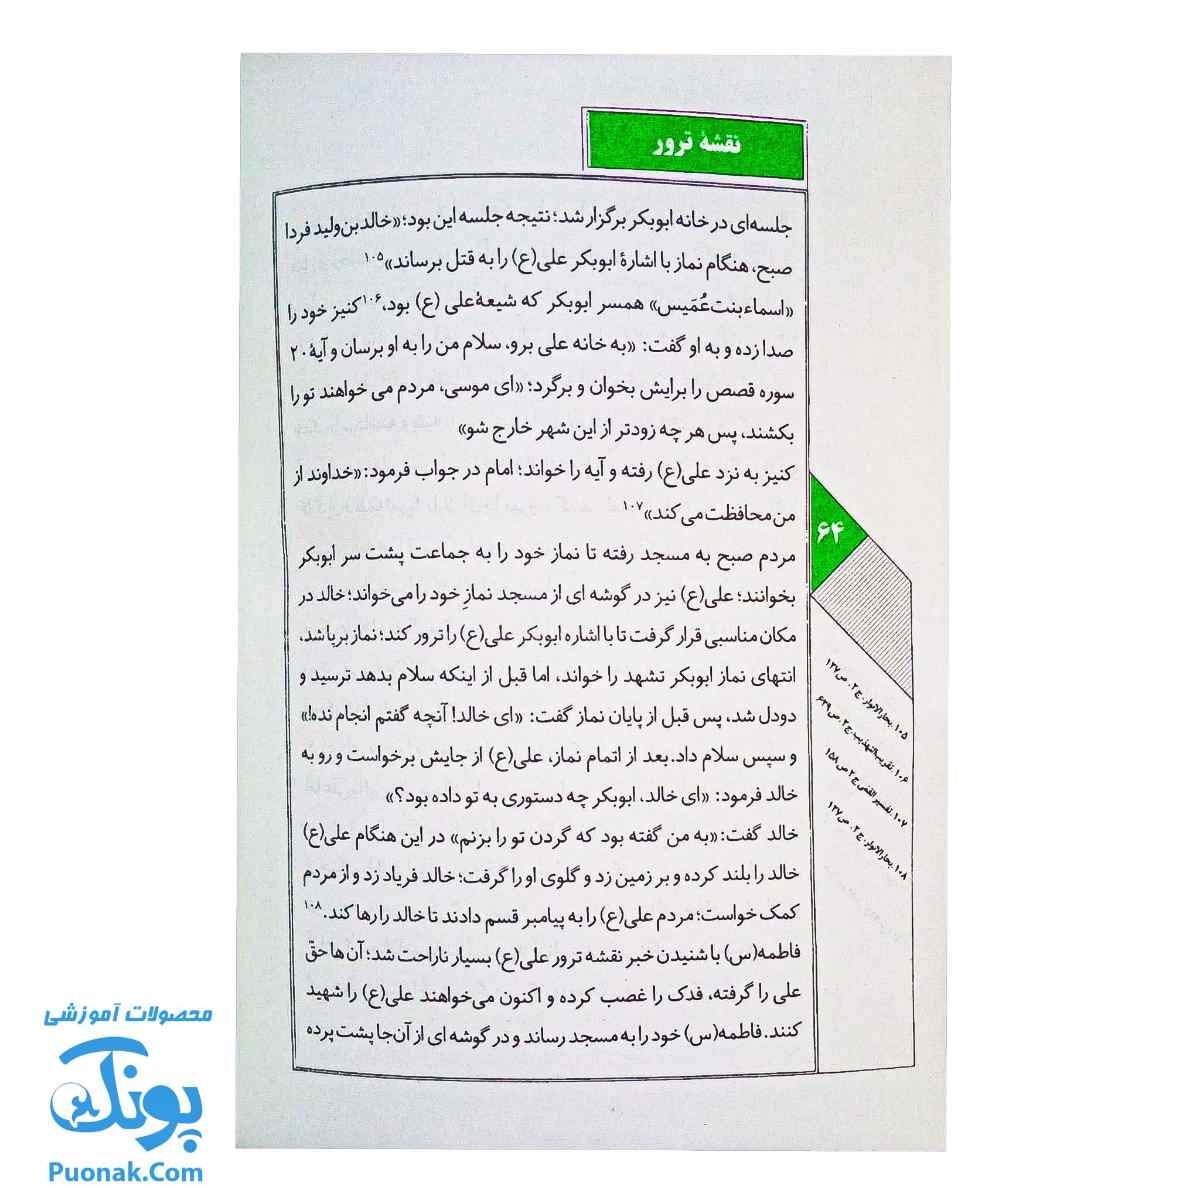 نقشهٔ ترور
جلسه‌ای در خانه ابوبکر برگزار شد؛ نتیجه جلسه این بود؛ «خالدبن‌ولید فردا
صبح، هنگام نماز با اشارهٔ ابوبکر علی(ع) را به قتل برساند»۱۰۵
«اسماءبنت‌عُمَیس» همسر ابوبکر که شیعهٔ علی (ع) بود،۱۰۶ کنیز خود را
صدا زده و به او گفت: «به خانه علی برو، سلام من را به او برسان و آیهٔ ۲۰
سوره قصص را برایش بخوان و برگرد؛ «ای موسی، مردم می خواهند تو را
بکشند، پس هر چه زودتر از این شهر خارج شو»
کنیز به نزد علی(ع) رفته و آیه را خواند؛ امام در جواب فرمود: «خداوند از
من محافظت می‌کند»۱۰۷
مردم صبح به مسجد رفته تا نماز خود را به جماعت پشت سر ابوبکر
بخوانند؛ علی(ع) نیز در گوشه ای از مسجد نمازِ خود را می‌خواند؛ خالد در
مکان مناسبی قرار گرفت تا با اشاره ابوبکر علی(ع) را ترور کند؛ نماز برپا شد،
انتهای نماز ابوبکر تشهد را خواند، اما قبل از اینکه سلام بدهد ترسید و
دودل شد، پس قبل از پایان نماز گفت: «ای خالد! آنچه گفتم انجام نده!»
و سپس سلام داد. بعد از اتمام نماز، علی(ع) از جایش برخواست و رو به
خالد فرمود: «ای خالد، ابوبکر چه دستوری به تو داده بود؟»
خالد گفت: «به من گفته بود که گردن تو را بزنم» در این هنگام علی(ع)
خالد را بلند کرده و بر زمین زد و گلوی او را گرفت؛ خالد فریاد زد و از مردم
کمک خواست؛ مردم علی(ع) را به پیامبر قسم دادند تا خالد را رها کند.۱۰۸
فاطمه(س) با شنیدن خبر نقشه ترور علی(ع) بسیار ناراحت شد؛ آن ها حقّ
علی را گرفته، فدک را غصب کرده و اکنون می‌خواهند علی(ع) را شهید
کنند. فاطمه(س) خود را به مسجد رساند و در گوشه ای از آن‌جا پشت پرده
۶۴
۱۰۵. بحارالانوار، ج۲، ص۱۳۷
۱۰۶. تقریب‌التهذیب، ج۲، ص۶۲۹
۱۰۷. تفسیر القمی ج۲ ص۱۵۸
۱۰۸. بحارالانوار، ج۲، ص۱۳۷
محصولات آموزشی
پونک
Puonak.Com